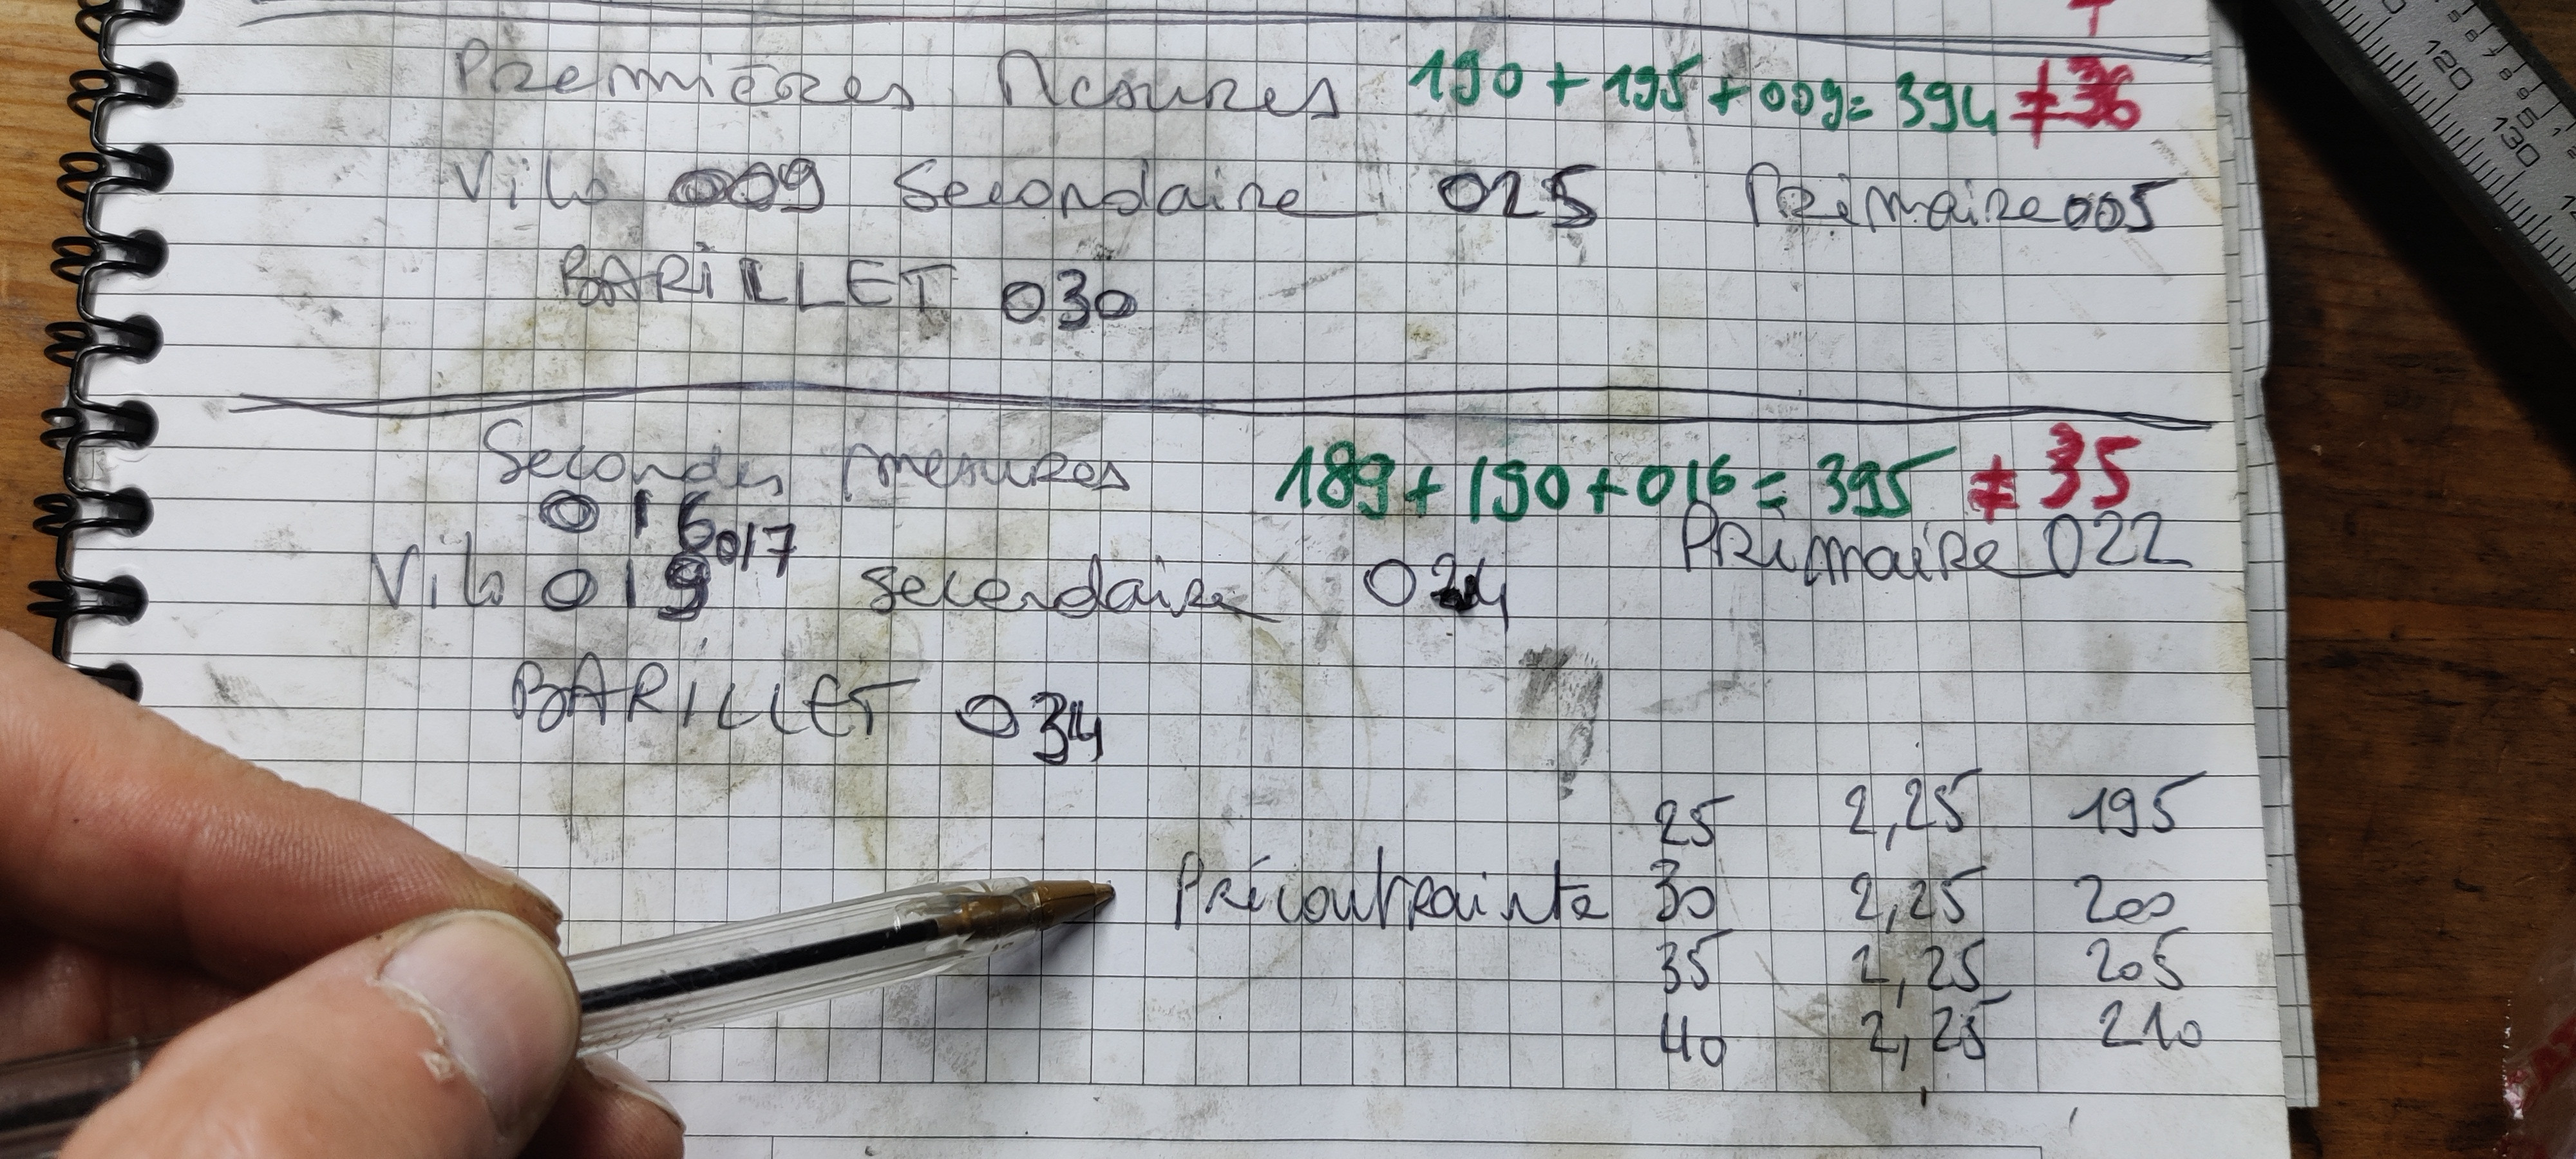 Premières Mesures 190 + 195 + 009 = 394 ≠ 36
Vilo 009 Secondaire 025 Primaire 005
BARILLET 030
Secondes mesures 189 + 190 + 016 = 395 ≠ 35
016 017 Primaire 022
Vilo 019 secendaire 024
BARILLET 034
25 2,25 195
Précontrainte 30 2,25 200
35 2,25 205
40 2,25 210
120
130